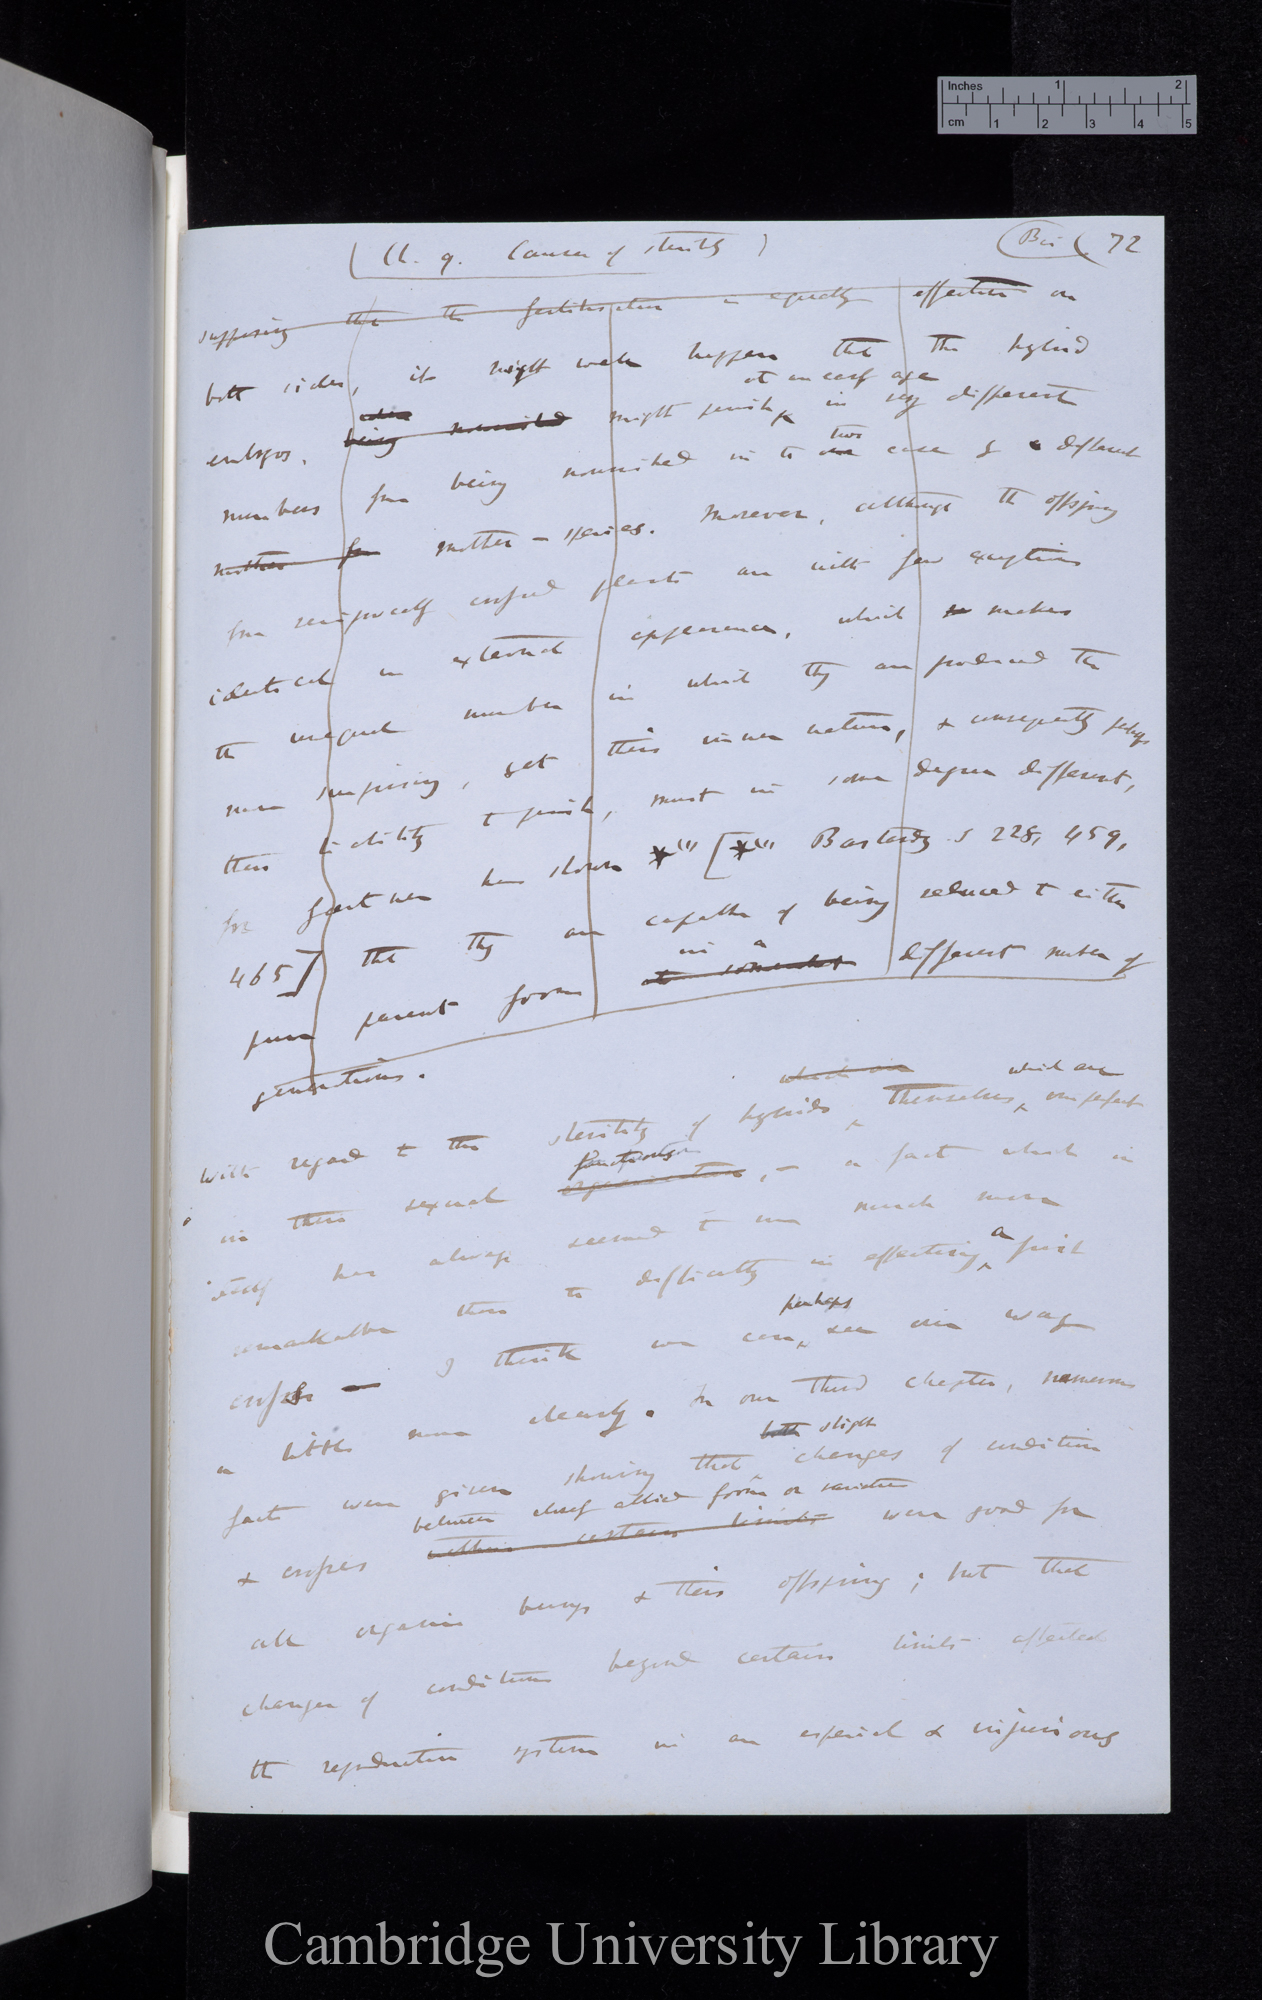 Inches 1 2
cm 1 2 3 4 5
(Ch. 9. Causes of sterility) (Bis) 72
supposing that the fertilisation is equally effective on
both sides, it might well happen that the hybrid
at an early age
embryos, being nourished might perish, in very different
two
numbers from being nourished in to one case of a different
mother for mother-species. Moreover, although the offspring
from reciprocally crossed plants are with few exceptions
identical in external appearance, which makes
the unequal number in which they are produced the
more surprising, yet their inner nature, & consequently perhaps
their liability to perish, must in some degree different,
for Gärtner has shown *''' [*''' Bastardz. s 228, 459,
465] that they are capable of being reduced to either
in a
pure parent form at somewhat different number of
generations.
which are which are
With regard to the sterility of hybrids, themselves, imperfect
functions
in their sexual organisation, — a fact which in
itself has always seemed to me much more
remarkable than the difficulty in effecting a first
perhaps
cross — I think we can see our way
a little more clearly. In our third chapter, numerous
both slight
facts were given showing that changes of condition
between closely allied forms or varieties
& crosses within certain limits were good for
all organic beings & their offspring; but that
changes of conditions beyond certain limits affected
the reproductive system in an especial & injurious
Cambridge University Library